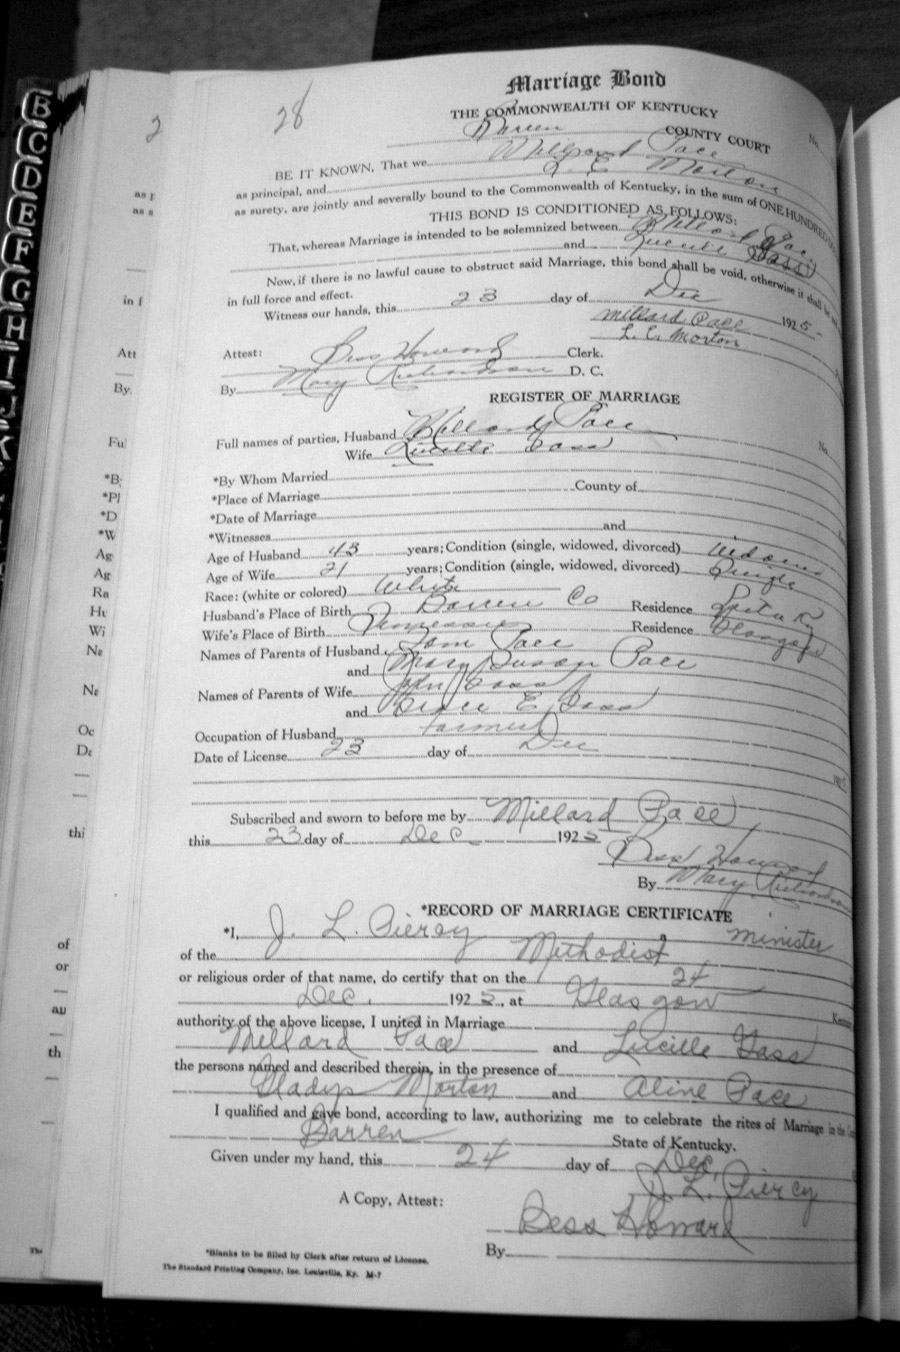 B
C
D
E
F
G
H
I
J
K
2
28
Marriage Bond
THE COMMONWEALTH OF KENTUCKY
No.
Barren COUNTY COURT
BE IT KNOWN, That we Millard Pace
as principal, and L. E. Morton
as surety, are jointly and severally bound to the Commonwealth of Kentucky, in the sum of ONE HUNDRED
THIS BOND IS CONDITIONED AS FOLLOWS:
That, whereas Marriage is intended to be solemnized between Millard Pace
and Lucille Gass
Now, if there is no lawful cause to obstruct said Marriage, this bond shall be void, otherwise it shall be
in full force and effect.
Witness our hands, this 23 day of Dec 1925
Millard Pace
L. E. Morton
Attest: Bess Howard Clerk.
By Mary Richardson D. C.
REGISTER OF MARRIAGE
Full names of parties, Husband Millard Pace
No.
Wife Lucille Gass
*By Whom Married
*Place of Marriage County of
*Date of Marriage
*Witnesses and
Age of Husband 43 years; Condition (single, widowed, divorced) Widowed
Age of Wife 21 years; Condition (single, widowed, divorced) Single
Race: (white or colored) White
Husband's Place of Birth Barren Co Residence Ky
Wife's Place of Birth Tennessee Residence Glasgow
Names of Parents of Husband Tom Pace
and Mary Susan Pace
Names of Parents of Wife John Gass
and Grace E Gass
Occupation of Husband farmer
Date of License 23 day of Dec
Subscribed and sworn to before me by Millard Pace
this 23 day of Dec 1925
Bess Howard
By Mary Richardson
*RECORD OF MARRIAGE CERTIFICATE
*I, J. L. Piercy a minister
of the Methodist
or religious order of that name, do certify that on the 24
Dec. 1925, at Glasgow
authority of the above license, I united in Marriage
Millard Pace and Lucille Gass
the persons named and described therein, in the presence of
Gladys Morton and Aline Pace
I qualified and gave bond, according to law, authorizing me to celebrate the rites of Marriage in the
Barren State of Kentucky.
Given under my hand, this 24 day of Dec.
J. L. Piercy
A Copy, Attest:
Bess Howard
By
*Blanks to be filled by Clerk after return of License.
The Standard Printing Company, Inc. Louisville, Ky. M-7